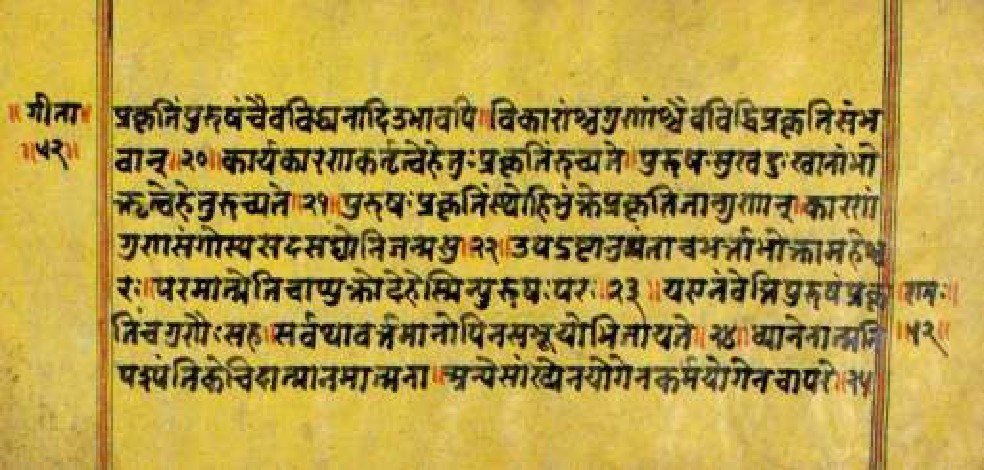 ॥गीता॥ प्रकृतिंपुरुषंचैवविद्ध्यनादिउभावपि॥विकारांश्चगुणांश्चैवविद्धिप्रकृतिसंभ
॥५२॥ वान्॥२०॥कार्यकारणकर्तृत्वेहेतुःप्रकृतिरुच्यते॥पुरुषःसुखदुःखानांभो
क्तृत्वेहेतुरुच्यते॥२१॥पुरुषःप्रकृतिंस्थोहिभुंक्तेप्रकृतिजान्गुणान्॥कारणं
गुणसंगोस्यसदसद्योनिजन्मसु॥२२॥उपद्रष्टानुमंताचभर्ताभोक्तामहेश्व
रः॥परमात्मेतिचाप्युक्तोदेहेस्मिन्पुरुषःपरः॥२३॥यएनंवेत्तिपुरुषंप्रकृ ॥रामः॥
तिंचगुणैःसह॥सर्वथावर्तमानोपिनसभूयोभिजायते॥२४॥ध्यानेनात्मनि ॥५२॥
पश्यंतिकेचिदात्मानमात्मना॥अन्येसांख्येनयोगेनकर्मयोगेनचापरे॥२५